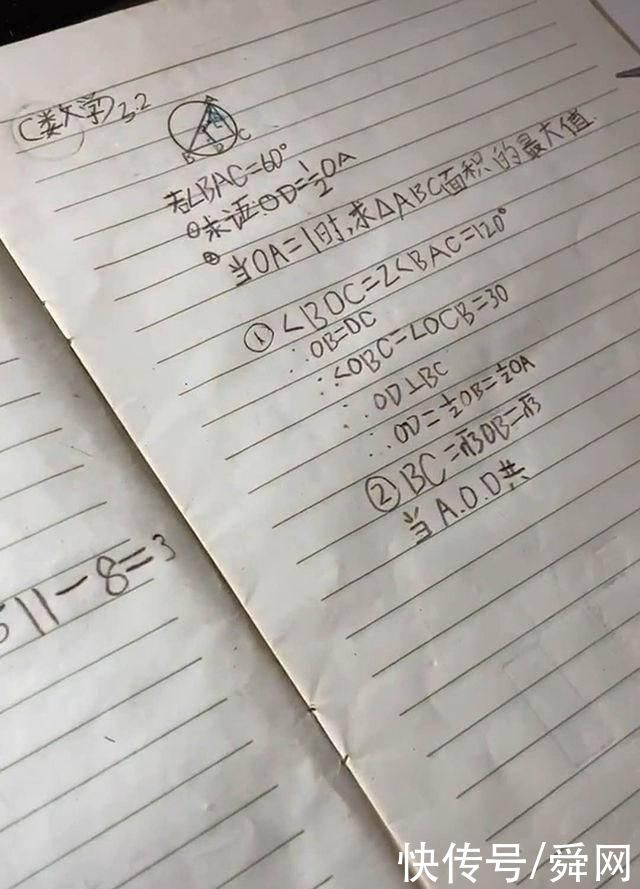 C类数学 3.2
A
B D C
若∠BAC=60°
①求证OD=½OA
②当OA=1时,求△ABC面积的最大值.
①∠BOC=2∠BAC=120°
∴OB=OC
∴∠OBC=∠OCB=30
∴OD⊥BC
∴OD=½OB=½OA
②BC=√3OB=√3
当A.O.D共
11-8=3
快传号/舜网